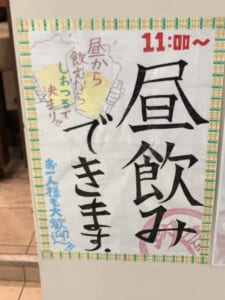 11:00〜
昼飲み
できます.
昼から
飲むなら
しおつるで
決まり!!
お一人様も大歓迎